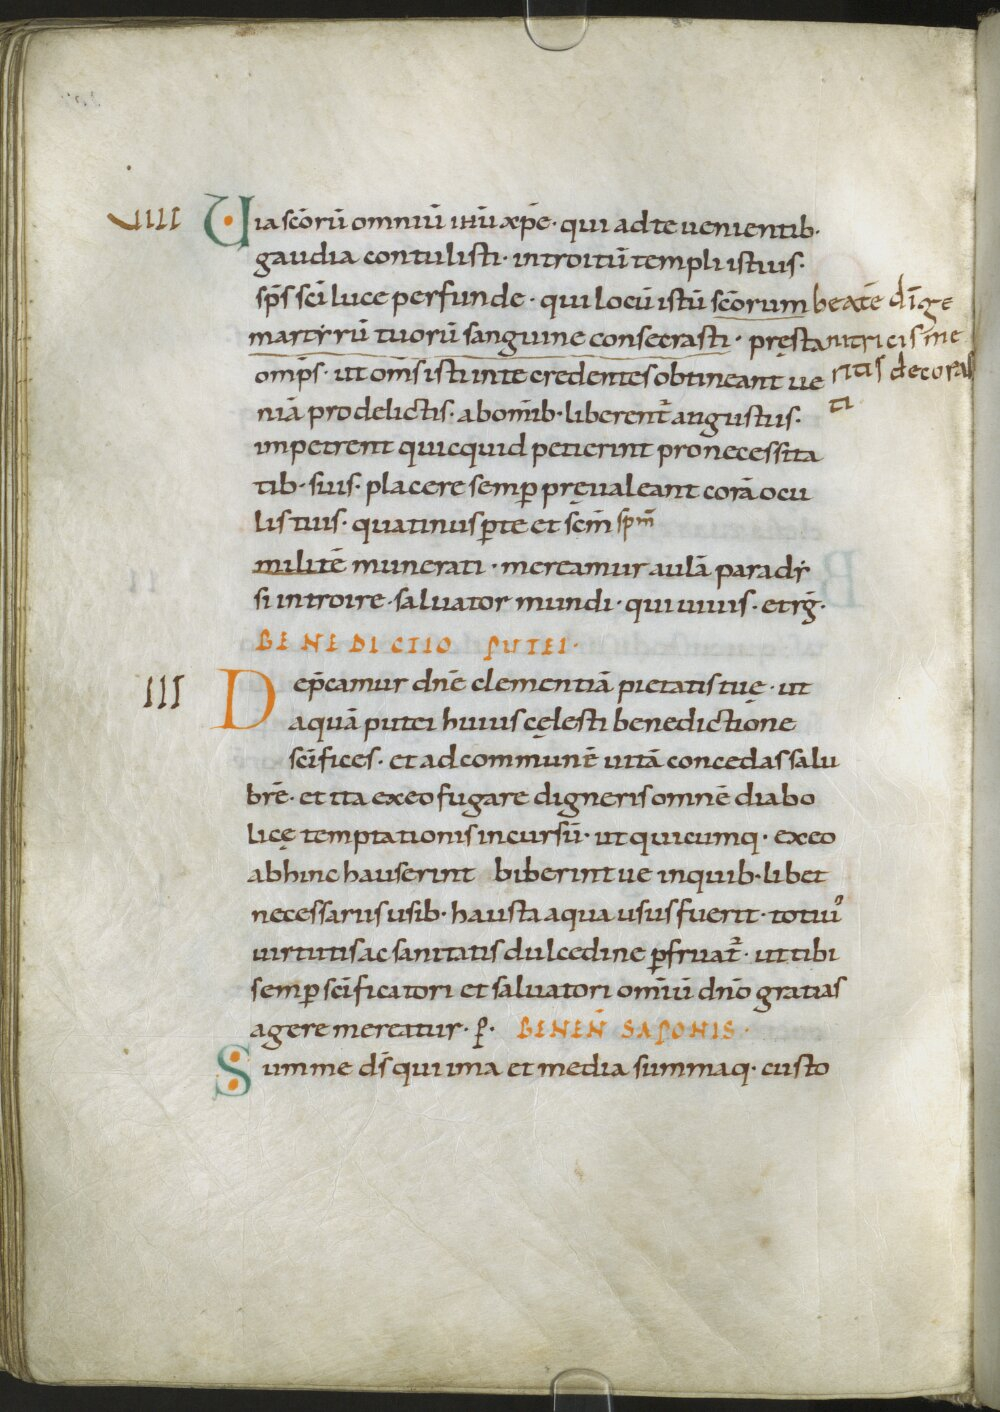 IIII Uia scōrū omniū ihū xp̄e· qui ad te uenientib·
gaudia contulisti· introitū templi istius·
sp̄s sc̄i luce perfunde· qui locū istū scōrum beatē dīge
martyrū tuorū sanguine consecrasti· pręsta nutricis me
omp̄s· ut om̄s isti in te credentes obtineant ue ritis decoras
niā pro delictis· ab om̄ib· liberent᷑ angustiis· ti
impetrent quicquid petierint pro necessita
tib· suis· placere semp̄ pręualeant corā ocu
lis tuis· quatinus p̄te et scm̄ spm̄
militē munerati· mereamur aulā parady
si introire· saluator mundi· qui uiuis· et rḡ·
BENEDICTIO PUTEI·
III Dep̄camur dn̄e clementiā pietatis tuę· ut
aquā putei huius cęlesti benedictione
sc̄ifices· et ad communē uitā concedas salu
brē· et ita ex eo fugare digneris omnē diabo
licę temptationis incursū· ut quicumq· ex eo
abhinc hauserint biberint ue in quib· libet
necessariis usib· hausta aqua usus fuerit· totiuꝰ
uirtutis ac sanitatis dulcedine p̄fruat᷑· ut tibi
semp̄ sc̄ificatori et saluatori om̄iū dn̄o gratias
agere mereatur· p̄· BENEN̄ SAPONIS·
Summe ds̄ qui ima et media summaq· custo